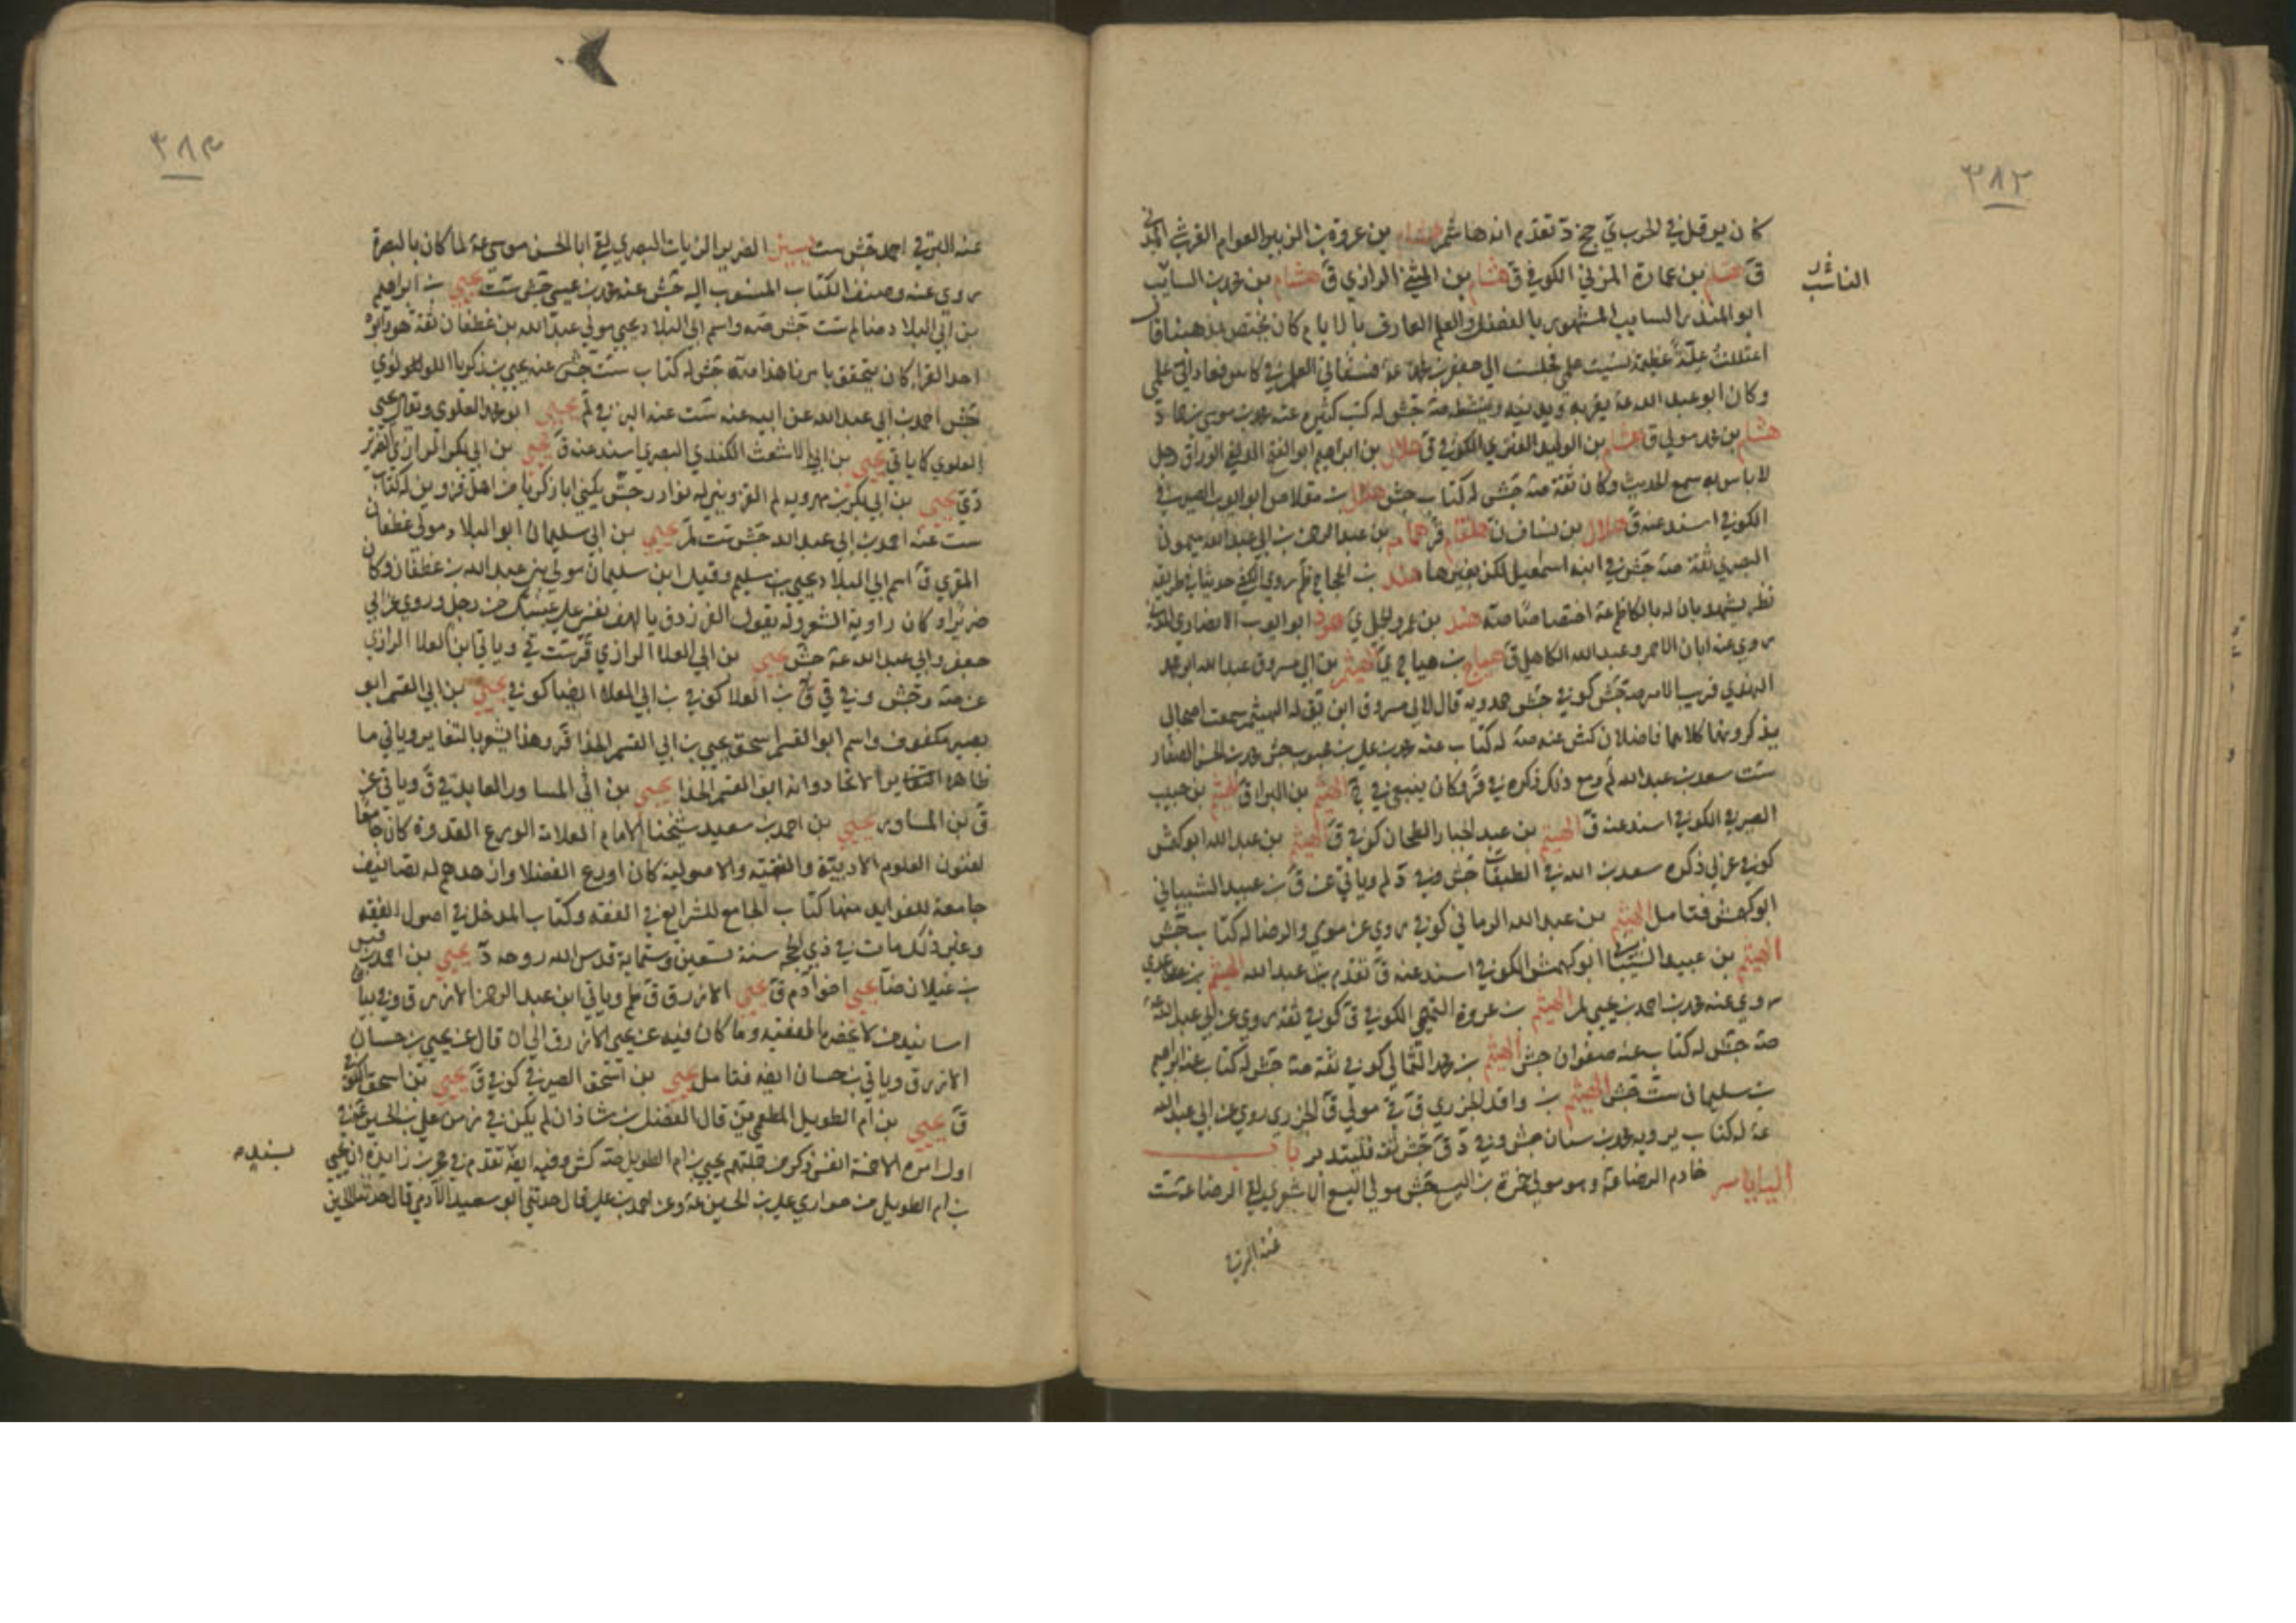 ٣٨٢
كان يوم قتل في الحرب ي جخ د تقدم انه هاشم هشام بن عروة بن الزبير بن العوام القرشي المدني
ق هشام بن عمارة المزني الكوفي ق هشام بن المثنى الرازي ق هشام بن محمد بن السايب
الناسب
ابو المنذر السايب المشهور بالفضل والعلم العارف بالايام كان يختص بمذهبنا قال
اعتللت علة عظيمة نسيت علمي فجلست الى جعفر بن محمد عه فسقاني العلم في كاس فعاد الي علمي
وكان ابو عبد الله عه يقربه ويدنيه وينشطه صه جش له كتب كثيرة عنه محمد بن موسى بن حماد
هشام بن محمد مولى ق هشام بن الوليد الكوفي ق هلال بن ابراهيم ابو الفتح الوراق رجل
لا باس به سمع الحديث وكان ثقة صه جش له كتاب جش هلال بن مقلاص ابو ايوب الصيرفي
الكوفي اسند عنه ق هلال بن يساف ن هلقام قر همام بن عبد الرحمن بن ابي عبد الله ميمون
البصري ثقة صه جش في ابنه اسمعيل لكن بغير هاء هند بن الحجاج ظم روى الكشي حديثا في طريقه
نظر يشهد بان له بالكاظم عه اختصاصا صه هند بن عمرو الجملي ي هود ابو ايوب الانصاري
روى عنه ابان الاحمر وعبد الله الكاهلي ق هياج بن هياج ي الهيثم بن ابي مسروق عبد الله ابو محمد
النهدي قريب الامر صه جش كوفي جش حمدويه قال لابي مسروق ابن يقال له الهيثم سمعت اصحابي
يذكرونهما كلاهما فاضلان كش عنه صه له كتاب عنه محمد بن علي بن محبوب جش محمد بن الحسن الصفار
ست سعد بن عبد الله لم ومع ذلك ذكره في قر وكان ينبغي في الهيثم بن البرا ق الهيثم بن حبيب
الصيرفي الكوفي اسند عنه ق الهيثم بن عبد الجبار الطحان كوفي ق الهيثم بن عبد الله ابو كهمش
كوفي عربي ذكره سعد بن الله في الطبقات جش وفي د لم وياتي عن ق بن عبيد الشيباني
ابو كهمش فتامل الهيثم بن عبد الله الرماني كوفي روى عن موسى والرضا له كتاب جش
الهيثم بن عبيد الشيباني ابو كهمش الكوفي اسند عنه ق تقدم بن عبد الله الهيثم بن عدي
روى عنه محمد بن احمد بن يحيى لم الهيثم بن عروة التميمي الكوفي ق كوفي ثقة روى عن ابي عبد الله عه
صه جش له كتاب عنه صفوان جش الهيثم بن محمد الثمالي كوفي ثقة صه جش له كتاب عنه ابراهيم
بن سليمان ست جش الهيثم بن واقد الجزري ق في مولى ق الجزري روى عن ابي عبد الله
عه له كتاب يرويه محمد بن سنان جش وفي د ق جش ثقة فليتدبر باب
اليا ياسر خادم الرضا عه وهو مولى حمزة بن اليسع جش مولى اليسع الاشعري الرضا عه ست
عنه البرقي
٣٨٣
عنه البرقي احمد جش ست يس الضرير الزيات البصري لقي ابا الحسن موسى عه لما كان بالبصرة
روى عنه وصنف الكتاب المنسوب اليه جش عنه محمد بن عيسى جش ست يحيى بن ابراهيم
بن ابي البلاد ضا لم ست جش صه واسم ابي البلاد يحيى مولى عبد الله بن غطفان ثقة هو وابوه
احد القراء كان يتحقق بامرنا هذا صه جش له كتاب ست جش عنه يحيى بن زكريا اللؤلؤي
جش احمد بن ابي عبد الله عن ابيه عنه ست عنه البرقي لم يحيى ابو محمد العلوي ويقال يحيى
العلوي كما ياتي يحيى بن ابي الاشعث الكندي البصري اسند عنه ق يحيى بن ابي بكر الرازي الضرير
دي يحيى بن ابي بكر بن مهرويه لم القزويني له نوادر جش يكنى ابا زكريا من اهل قزوين له كتاب
ست عنه احمد بن ابي عبد الله جش ست لم يحيى بن ابي سليمان ابو البلاد مولى غطفان
المقري ق اسم ابي البلاد يحيى بن سليم وقيل ابن سليمان مولى بني عبد الله بن غطفان وكان
ضريرا وكان راوية الشعر وله يقول الفرزدق يا لهف نفسي على عينيك من رجل وروى عن ابي
جعفر وابي عبد الله عه جش يحيى بن ابي العلا الرازي قر ست في وياتي ابن العلا الرازي
عن صه وجش وفي في ق بن العلا كوفي بن ابي العلا ايضا كوفي يحيى بن ابي القسم ابو
بصير مكفوف واسم ابو القسم اسحق يحيى بن ابي القسم الحذا قر وهذا يشعر بالتغاير وياتي ما
ظاهره الاتحاد وانه ابو القسم الحذا يحيى بن ابي المساور العابد في ق وياتي عن
ق بن المساور يحيى بن احمد بن سعيد شيخنا الامام العلامة الورع القدوة كان جامعا
لفنون العلوم الادبية والفقهية والاصولية كان اورع الفضلا وازهدهم له تصانيف
جامعة للفوايد منها كتاب الجامع للشرايع في الفقه وكتاب المدخل في اصول الفقه
وغير ذلك مات في ذي الحجة سنة تسعين وستماية قدس الله روحه د يحيى بن احمد بن قيس
بن غيلان ضا يحيى اخو ادم ق يحيى الازرق ق ظم وياتي ابن عبد الرحمن الازرق وفي بيان
اسانيد من لا يحضره الفقيه وما كان فيه عن يحيى الازرق الى ان قال عن يحيى بن حسان
الازرق وياتي بن حسان ايضا فتامل يحيى بن اسحق الصيرفي كوفي ق يحيى بن اسحق الكوفي
ق يحيى بن ام الطويل المطعمي ين قال الفضل بن شاذان لم يكن في زمن علي بن الحسين عه في
اول امره الا خمسة انفس وذكر من جملتهم يحيى بن ام الطويل صه كش وفيه ايضا تقدم في محمد بن زايدة ان يحيى
بن ام الطويل من حواري علي بن الحسين عه وعن احمد بن علي قال حدثني ابو سعيد الادمي قال حدثنا الحسين